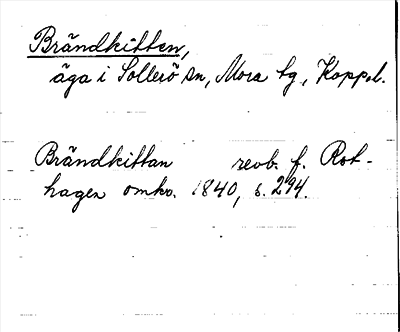 Brändkitten,
äga i Sollerö sn, Mora tg, Koppol.
Brändkittan revb. f. Rot-
hagen omkr. 1840, s. 294.